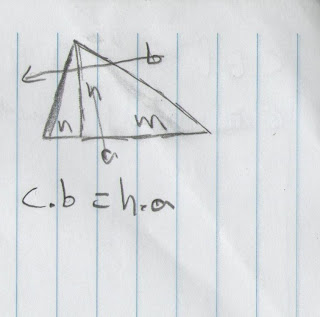 b
h
n m
a
c.b = h.a